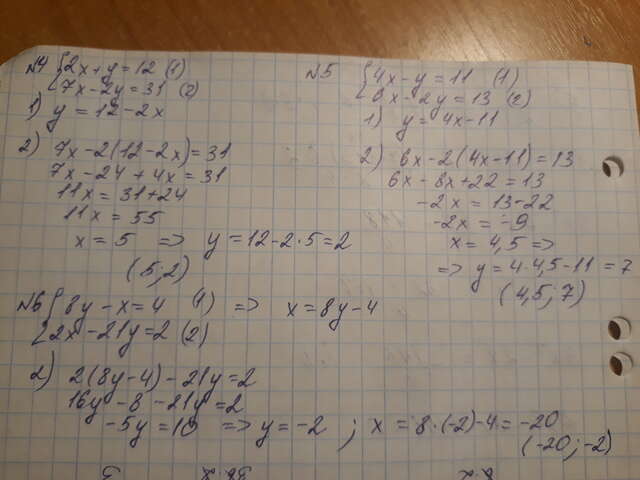 N4 { 2x + y = 12 (1)
7x - 2y = 31 (2)
1) y = 12 - 2x
2) 7x - 2(12 - 2x) = 31
7x - 24 + 4x = 31
11x = 31 + 24
11x = 55
x = 5 => y = 12 - 2·5 = 2
(5; 2)
N5
{ 4x - y = 11 (1)
6x - 2y = 13 (2)
1) y = 4x - 11
2) 6x - 2(4x - 11) = 13
6x - 8x + 22 = 13
-2x = 13 - 22
-2x = -9
x = 4,5 =>
=> y = 4·4,5 - 11 = 7
(4,5; 7)
N6 { 8y - x = 4 (1) => x = 8y - 4
2x - 21y = 2 (2)
2) 2(8y - 4) - 21y = 2
16y - 8 - 21y = 2
-5y = 10 => y = -2 ; x = 8·(-2) - 4 = -20
(-20; -2)